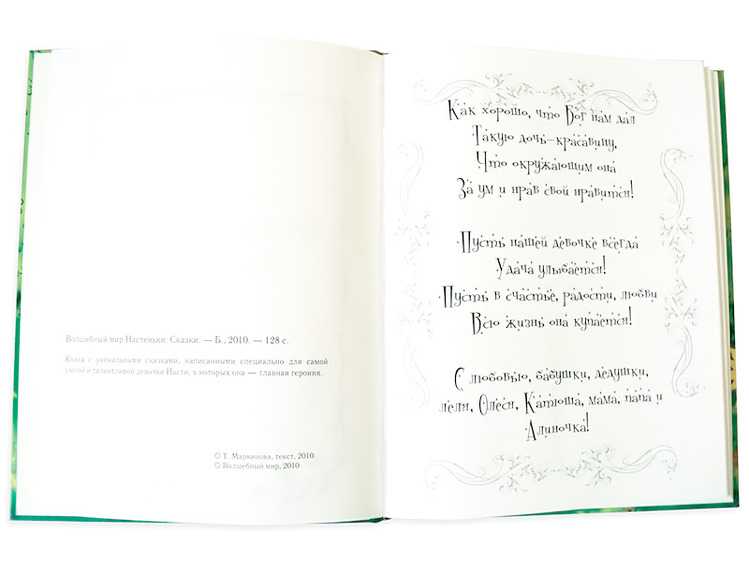 Волшебный мир Настеньки. Сказки. — Б., 2010. — 128 с.
Книга с уникальными сказками, написанными специально для самой
умной и талантливой девочки Насти, в которых она — главная героиня.
© Т. Маркинова, текст, 2010
© Волшебный мир, 2010
Как хорошо, что Бог нам дал
Такую дочь-красавицу,
Что окружающим она
За ум и нрав свой нравится!
Пусть нашей девочке всегда
Удача улыбается!
Пусть в счастье, радости, любви
Всю жизнь она купается!
С любовью, бабушки, дедушки,
лёля, Олеся, Катюша, мама, папа и
Алиночка!